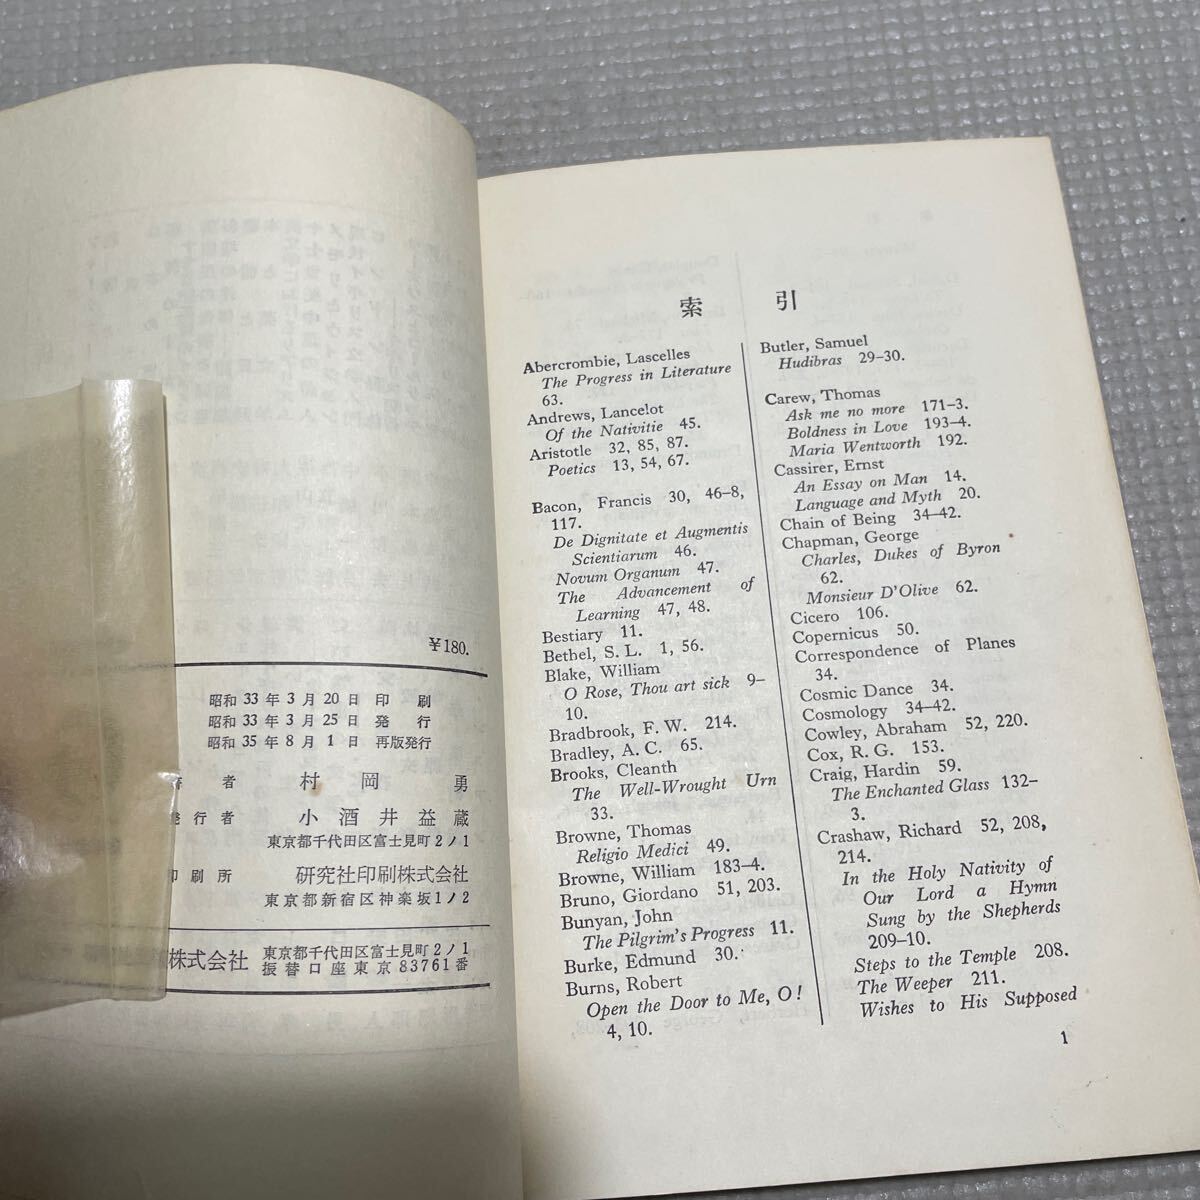 ¥180.
昭和33年3月20日 印刷
昭和33年3月25日 発行
昭和35年8月1日 再版発行
者 村岡勇
発行者 小酒井益蔵
東京都千代田区富士見町2ノ1
印刷所 研究社印刷株式会社
東京都新宿区神楽坂1ノ2
株式会社 東京都千代田区富士見町2ノ1
振替口座東京83761番
索引
Abercrombie, Lascelles
The Progress in Literature
63.
Andrews, Lancelot
Of the Nativitie 45.
Aristotle 32, 85, 87.
Poetics 13, 54, 67.
Bacon, Francis 30, 46–8,
117.
De Dignitate et Augmentis
Scientiarum 46.
Novum Organum 47.
The Advancement of
Learning 47, 48.
Bestiary 11.
Bethel, S. L. 1, 56.
Blake, William
O Rose, Thou art sick 9–
10.
Bradbrook, F. W. 214.
Bradley, A. C. 65.
Brooks, Cleanth
The Well-Wrought Urn
33.
Browne, Thomas
Religio Medici 49.
Browne, William 183–4.
Bruno, Giordano 51, 203.
Bunyan, John
The Pilgrim's Progress 11.
Burke, Edmund 30.
Burns, Robert
Open the Door to Me, O!
4, 10.
Butler, Samuel
Hudibras 29–30.
Carew, Thomas
Ask me no more 171–3.
Boldness in Love 193–4.
Maria Wentworth 192.
Cassirer, Ernst
An Essay on Man 14.
Language and Myth 20.
Chain of Being 34–42.
Chapman, George
Charles, Dukes of Byron
62.
Monsieur D'Olive 62.
Cicero 106.
Copernicus 50.
Correspondence of Planes
34.
Cosmic Dance 34.
Cosmology 34–42.
Cowley, Abraham 52, 220.
Cox, R. G. 153.
Craig, Hardin 59.
The Enchanted Glass 132–
3.
Crashaw, Richard 52, 208,
214.
In the Holy Nativity of
Our Lord a Hymn
Sung by the Shepherds
209–10.
Steps to the Temple 208.
The Weeper 211.
Wishes to His Supposed
1